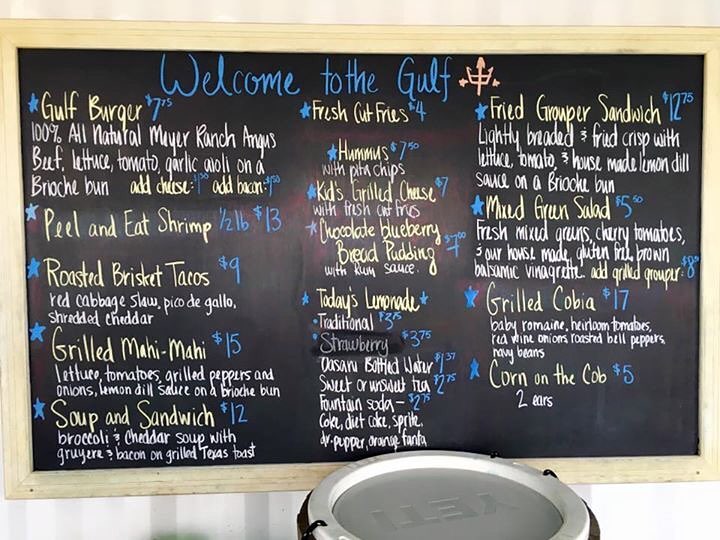 Welcome to the Gulf
Gulf Burger $7.75
100% All Natural Meyer Ranch Angus
Beef, lettuce, tomato, garlic aioli on a
Brioche bun add cheese: $1.50 add bacon: $1.50
Peel and Eat Shrimp 1/2 lb $13
Roasted Brisket Tacos $9
red cabbage slaw, pico de gallo,
shredded cheddar
Grilled Mahi-Mahi $15
lettuce, tomatoes, grilled peppers and
onions, lemon dill sauce on a brioche bun
Soup and Sandwich $12
broccoli & cheddar soup with
gruyere & bacon on grilled Texas toast
Fresh Cut Fries $4
Hummus $7.50
with pita chips
Kid's Grilled Cheese $7
with fresh cut fries
Chocolate blueberry
Bread Pudding $7.00
with Rum sauce.
Today's Lemonade
• Traditional $3.75
• Strawberry $3.75
Dasani Bottled Water $1.37
Sweet or unsweet tea $2.75
Fountain soda - $2.75
Coke, diet coke, sprite,
dr. pepper, orange fanta
Fried Grouper Sandwich $12.75
Lightly breaded & fried crisp with
lettuce, tomato, & house made lemon dill
sauce on a Brioche bun
Mixed Green Salad $5.50
Fresh mixed greens, cherry tomatoes,
& our house made, gluten free, brown
balsamic vinagrette. add grilled grouper: $8
Grilled Cobia $17
baby romaine, heirloom tomatoes,
red wine onions roasted bell peppers,
navy beans
Corn on the Cob $5
2 ears
YETI